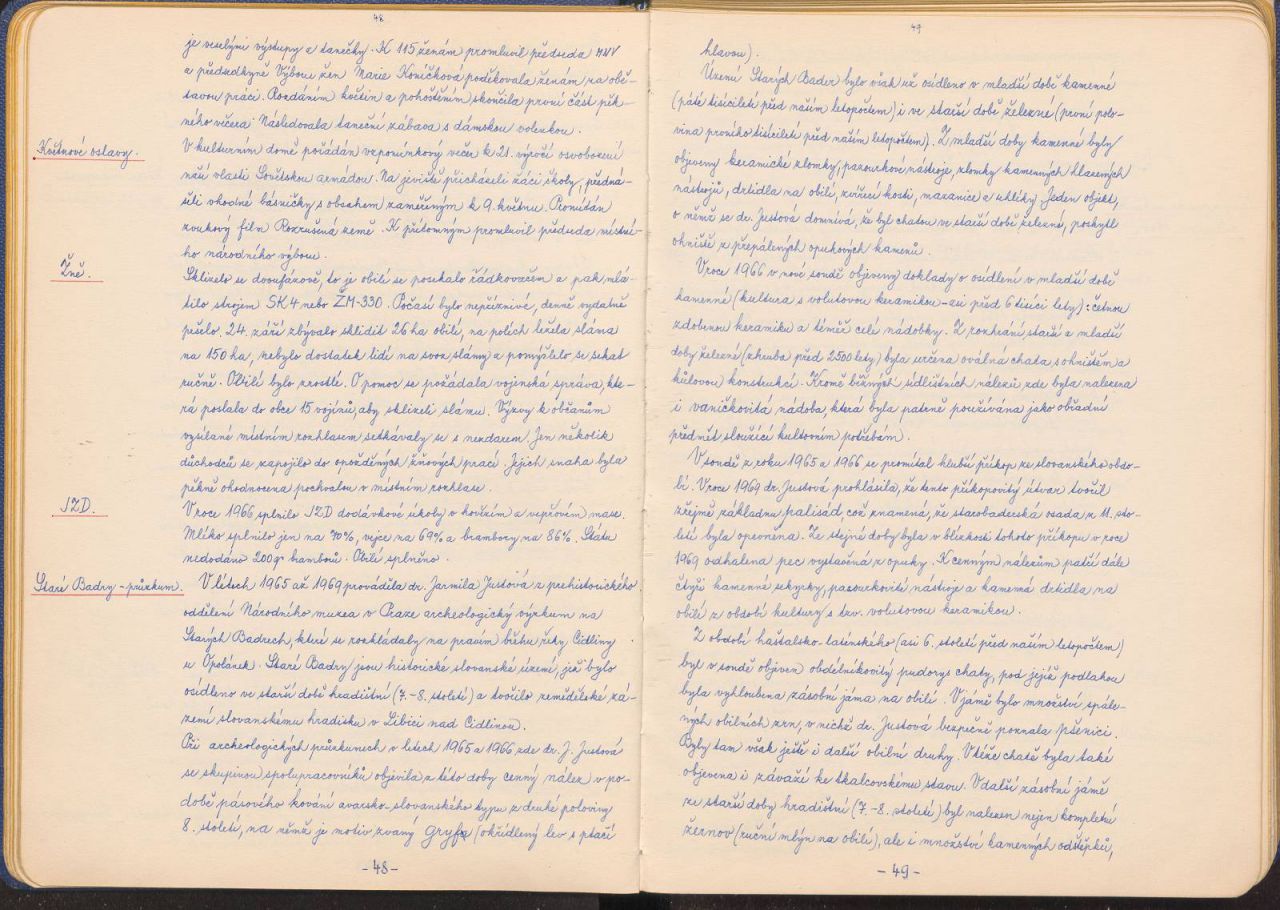 48
je veselými výstupy a tanečky. K 115 ženám promluvil předseda MNV
a předsedkyně Výboru žen Marie Koníčková poděkovala ženám za obě-
tavou práci. Rozdáním květin a pohoštěním skončila první část pěk-
ného večera. Následovala taneční zábava s dámskou volenkou.
Květnové oslavy.
V kulturním domě pořádán vzpomínkový večer k 21. výročí osvobození
naší vlasti Sovětskou armádou. Na jeviště přicházeli žáci školy, předná-
šeli vhodné básničky s obsahem zaměřeným k 9. květnu. Promítán
zvukový film Rozrušená země. K přítomným promluvil předseda místní-
ho národního výboru.
Žně.
Sklízelo se dvoufázově, to je obilí se posekalo řádkovačem a pak mlá-
tilo strojem SK 4 nebo ŽM-330. Počasí bylo nepříznivé, denně vydatně
pršelo. 24. září zbývalo sklidit 26 ha obilí, na polích ležela sláma
na 150 ha, nebylo dostatek lidí na svoz slámy a pomýšlelo se sekat
ručně. Obilí bylo zrostlé. O pomoc se požádala vojenská správa, kte-
rá poslala do obce 15 vojínů, aby sklízeli slámu. Výzvy k občanům
vysílané místním rozhlasem setkávaly se s nezdarem. Jen několik
důchodců se zapojilo do opožděných žňových prací. Jejich snaha byla
pěkně ohodnocena pochvalou v místním rozhlase.
JZD.
V roce 1966 splnilo JZD dodávkové úkoly v hovězím a vepřovém mase.
Mléko splnilo jen na 70%, vejce na 69% a brambory na 86%. Státu
nedodáno 200 q bramborů. Obilí splněno.
Staré Badry - průzkum.
V létech 1965 až 1969 prováděla dr. Jarmila Justová z prehistorického
oddělení Národního muzea v Praze archeologický výzkum na
Starých Badrech, které se rozkládaly na pravém břehu řeky Cidliny
u Opolánek. Staré Badry jsou historické slovanské území, jež bylo
osídleno ve starší době hradištní (7.-8. století) a tvořilo zemědělské zá-
zemí slovanskému hradisku v Libici nad Cidlinou.
Při archeologických průzkumech v létech 1965 a 1966 zde dr. J. Justová
se skupinou spolupracovníků objevila z této doby cenný nález v po-
době pásového kování avarsko-slovanského typu z druhé poloviny
8. století, na němž je motiv zvaný gryf (okřídlený lev s ptačí
- 48 -
49
hlavou).
Území Starých Bader bylo však už osídleno v mladší době kamenné
(páté tisíciletí před naším letopočtem) i ve starší době železné (první polo-
vina prvního tisíciletí před naším letopočtem). Z mladší doby kamenné byly
objeveny keramické zlomky, pazourkové nástroje, zlomky kamenných hlazených
nástrojů, drtidla na obilí, zvířecí kosti, mazanice a uhlíky. Jeden objekt,
o němž se dr. Justová domnívá, že byl chatou ve starší době železné, poskytl
ohniště z přepálených opukových kamenů.
V roce 1966 v nové sondě objeveny doklady o osídlení v mladší době
kamenné (kultura s volutovou keramikou - asi před 6 tisíci lety): četnou
zdobenou keramiku a téměř celé nádobky. Z rozhraní starší a mladší
doby železné (zhruba před 2500 lety) byla určena oválná chata s ohništěm a
kůlovou konstrukcí. Kromě běžných sídlištních nálezů zde byla nalezena
i vaničkovitá nádoba, která byla patrně používána jako obřadní
předmět sloužící kultovním potřebám.
V sondě z roku 1965 a 1966 se promítal hlubší příkop ze slovanského obdo-
bí. V roce 1969 dr. Justová prohlásila, že tento příkopovitý útvar tvořil
zřejmě základnu palisád, což znamená, že starobaderská osada z 11. sto-
letí byla opevněna. Ze stejné doby byla v blízkosti tohoto příkopu v roce
1969 odhalena pec vystavěná z opuky. K cenným nálezům patří dále
čtyři kamenné sekyrky, pazourkovité nástroje a kamenná drtidla na
obilí z období kultury s tzv. volutovou keramikou.
Z období halštatsko-laténského (asi 6. století před naším letopočtem)
byl v sondě objeven obdélníkovitý půdorys chaty, pod jejíž podlahou
byla vyhloubena zásobní jáma na obilí. V jámě bylo množství spále-
ných obilních zrn, v nichž dr. Justová bezpečně poznala pšenici.
Byly tam však ještě i další obilní druhy. V téže chatě byla také
objevena i závaží ke tkalcovskému stavu. V další zásobní jámě
ze starší doby hradištní (7.-8. století) byl nalezen nejen kompletní
žernov (ruční mlýn na obilí), ale i množství kamenných odštěpků,
- 49 -